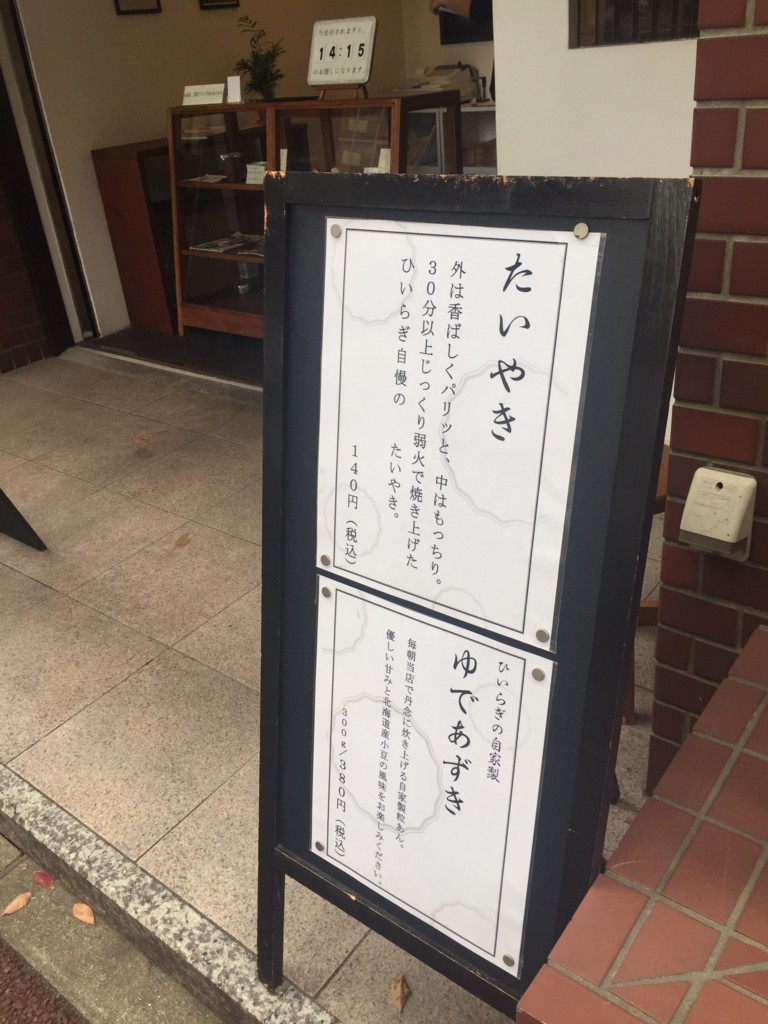 今受付されますと、
14:15
のお渡しになります。
たいやき
外は香ばしくパリッと、中はもっちり。
30分以上じっくり弱火で焼き上げた
ひいらぎ自慢の たいやき。
140円(税込)
ひいらぎの自家製
ゆであずき
毎朝当店で丹念に炊き上げる自家製粒あん。
優しい甘みと北海道産小豆の風味をお楽しみください。
300g/380円(税込)